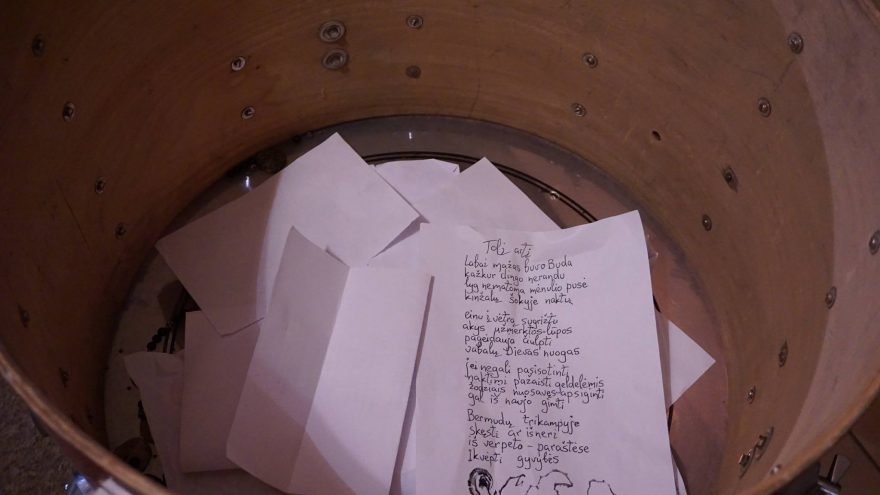 Tolį artį
Labai mažas buvo Buda
kažkur dingo nerandu
lyg nematoma mėnulio pusė
kinžalų šokyje naktų
einu į vėtrą sugrįžtu
akys užmerktos lūpos
pageidauja čiulpti
vabalų Dievas nuogas
jei negali pasisotinti
naktimi pažaisti geldelėmis
žodžiais nuosavęs apsiginti
gal iš naujo gimti
Bermudų trikampyje
skęsti ar išnerti
iš verpeto - paraštėse
Įkvėpti gyvybės